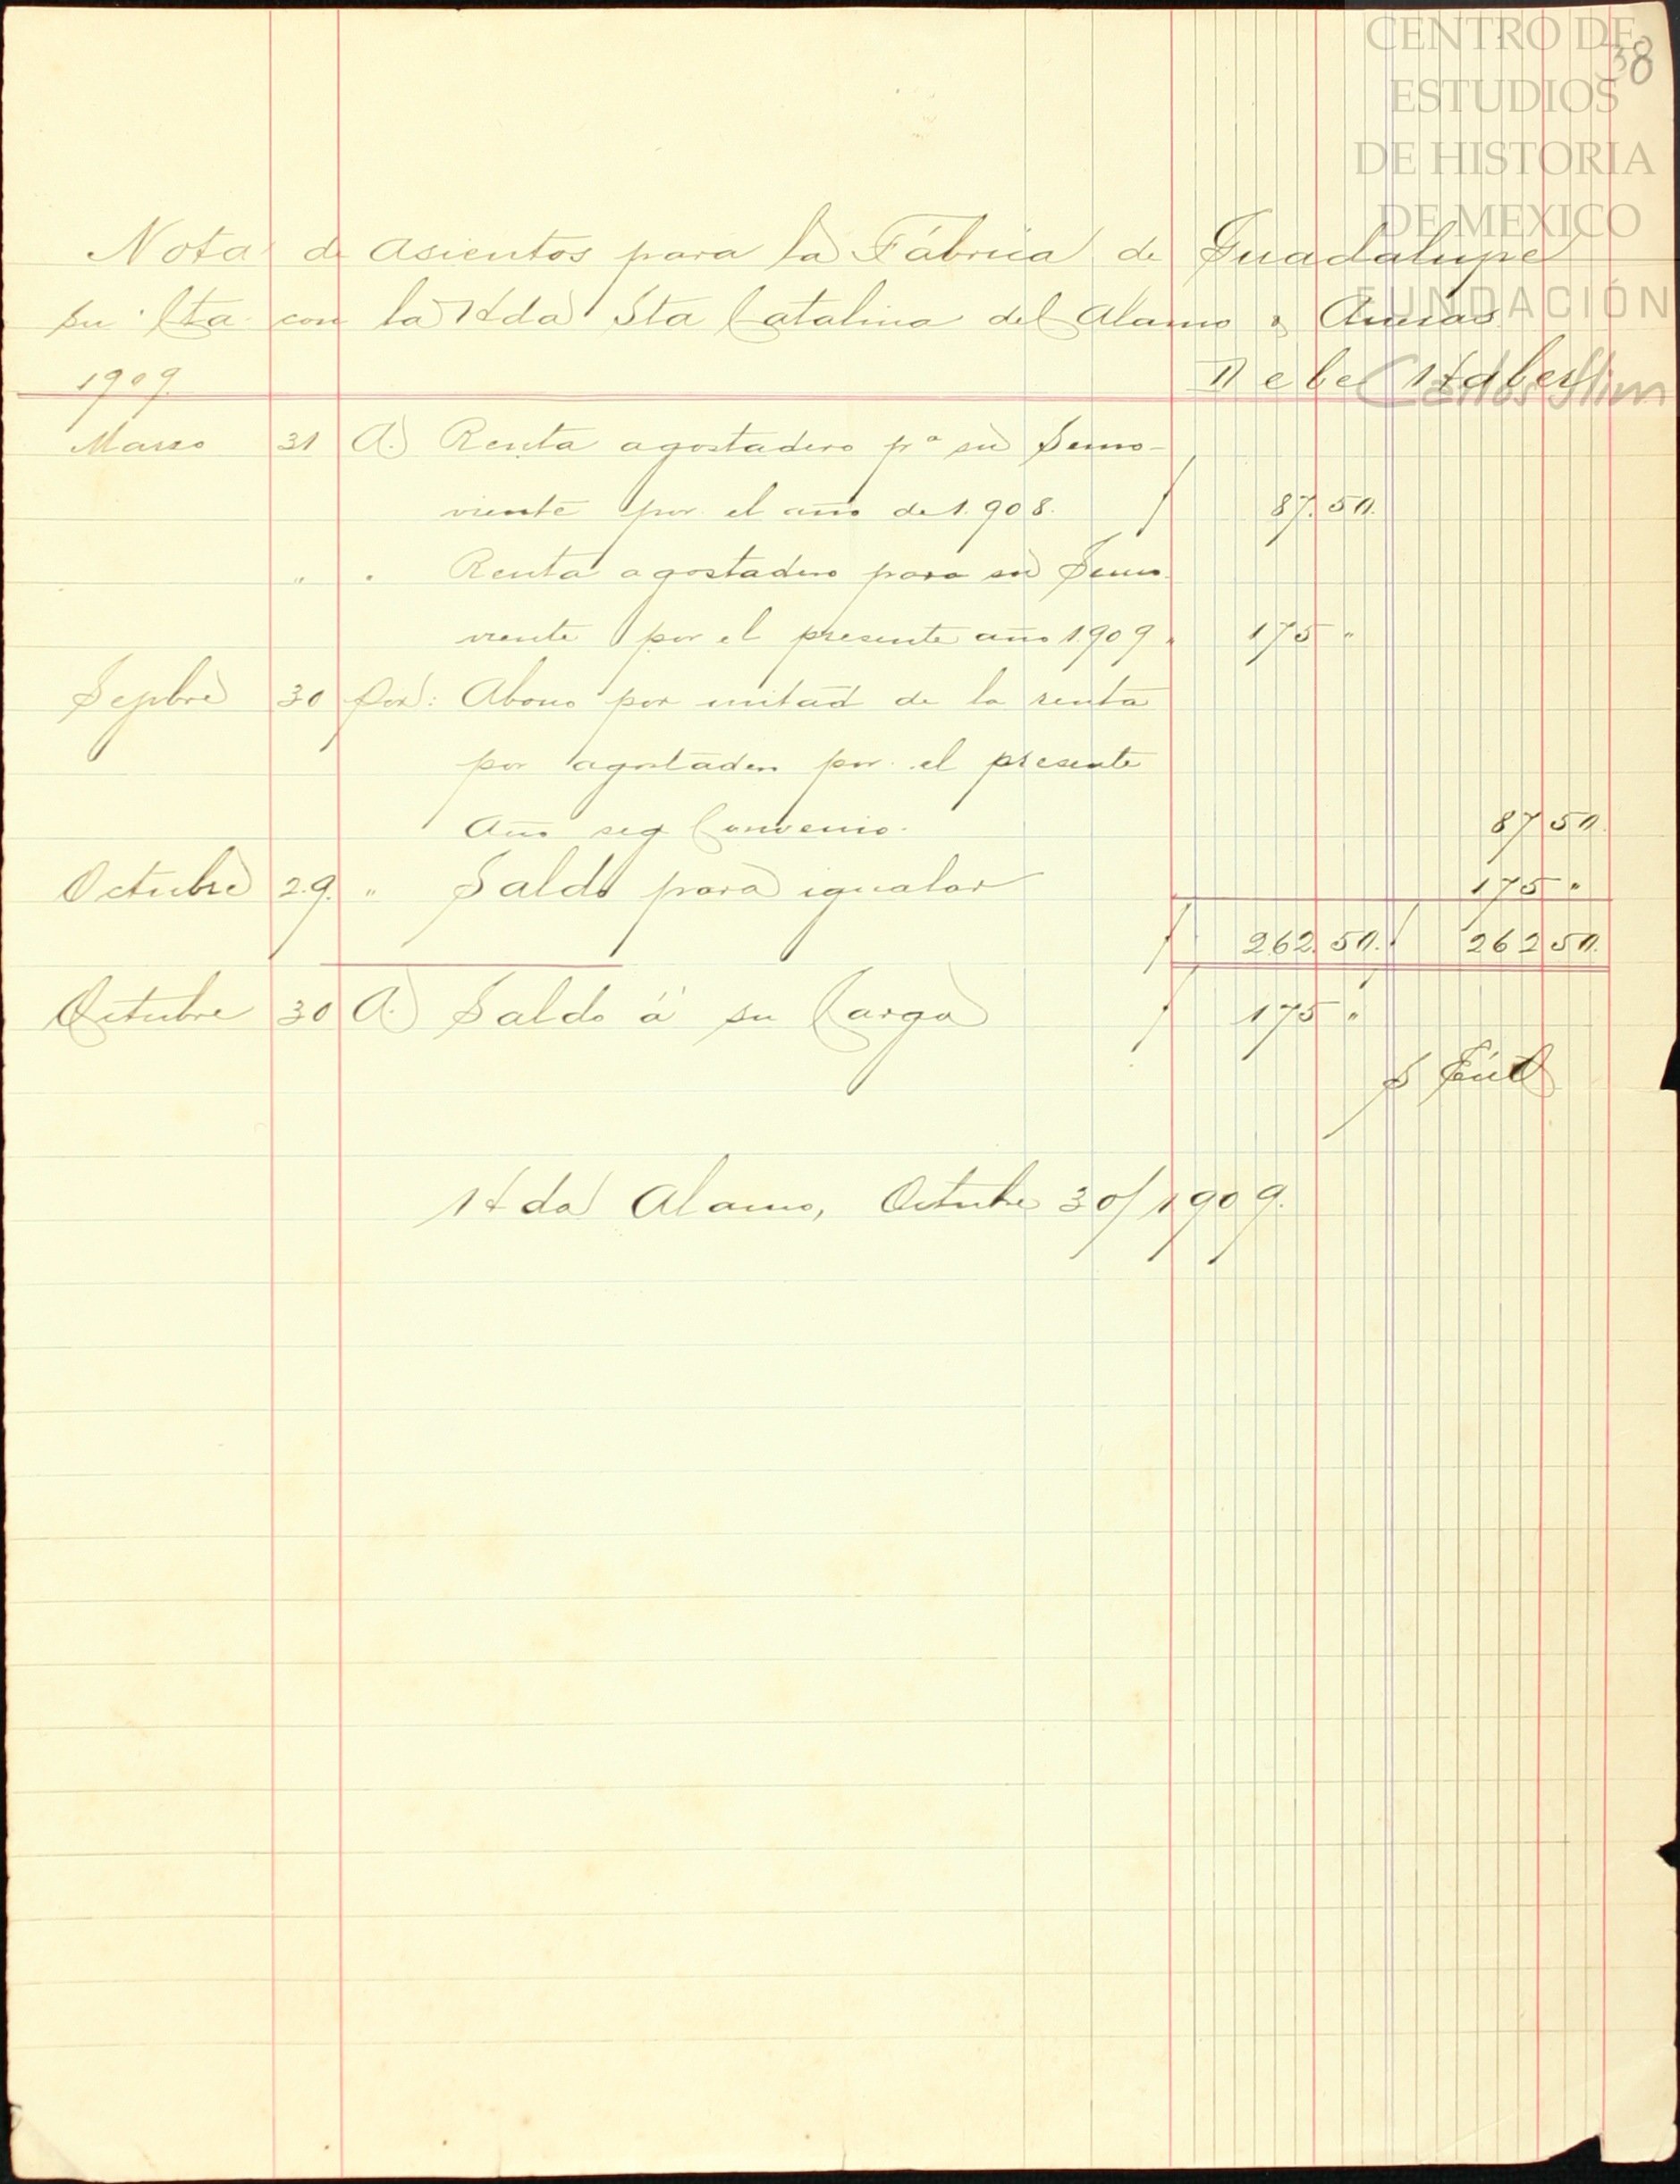 CENTRO DE
ESTUDIOS
DE HISTORIA
DE MEXICO
FUNDACIÓN
Carlos Slim
38
Nota de Asientos para la Fábrica de Guadalupe
su Cta con la Hda Sta Catalina del Alamo y Anexas
1909. Debe Haber
Marzo 31 A. Renta agostadero pª su Semo-
viente por el año de 1.908. $ 87.50.
" " Renta agostadero para su Semo-
viente por el presente año 1909 " 175 "
Sepbre 30 Por: Abono por mitad de la renta
por agostadero por el presente
Año seg Convenio. 87 50.
Octubre 29. " Saldo para igualar 175 "
$ 262.50. $ 262 50.
Octubre 30 A. Saldo á su Cargo $ 175 "
Hda Alamo, Octubre 30/1909.